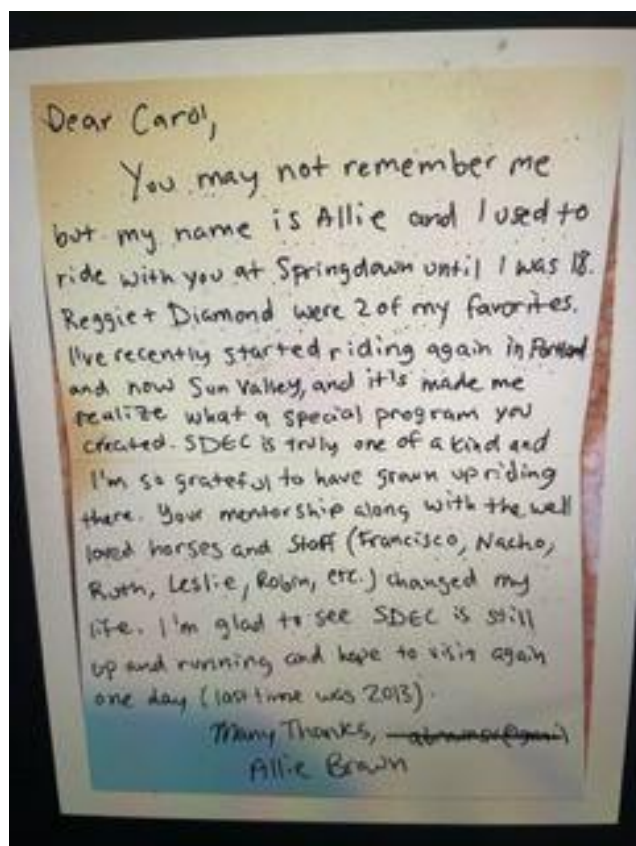 Dear Carol,
You may not remember me
but my name is Allie and I used to
ride with you at Springdown until I was 18.
Reggie + Diamond were 2 of my favorites.
I've recently started riding again in Portland
and now Sun Valley, and it's made me
realize what a special program you
created. SDEC is truly one of a kind and
I'm so grateful to have grown up riding
there. Your mentorship along with the well
loved horses and Staff (Francisco, Nacho,
Ruth, Leslie, Robin, etc.) changed my
life. I'm glad to see SDEC is still
up and running and hope to visit again
one day (last time was 2013).
Many Thanks,
Allie Brown